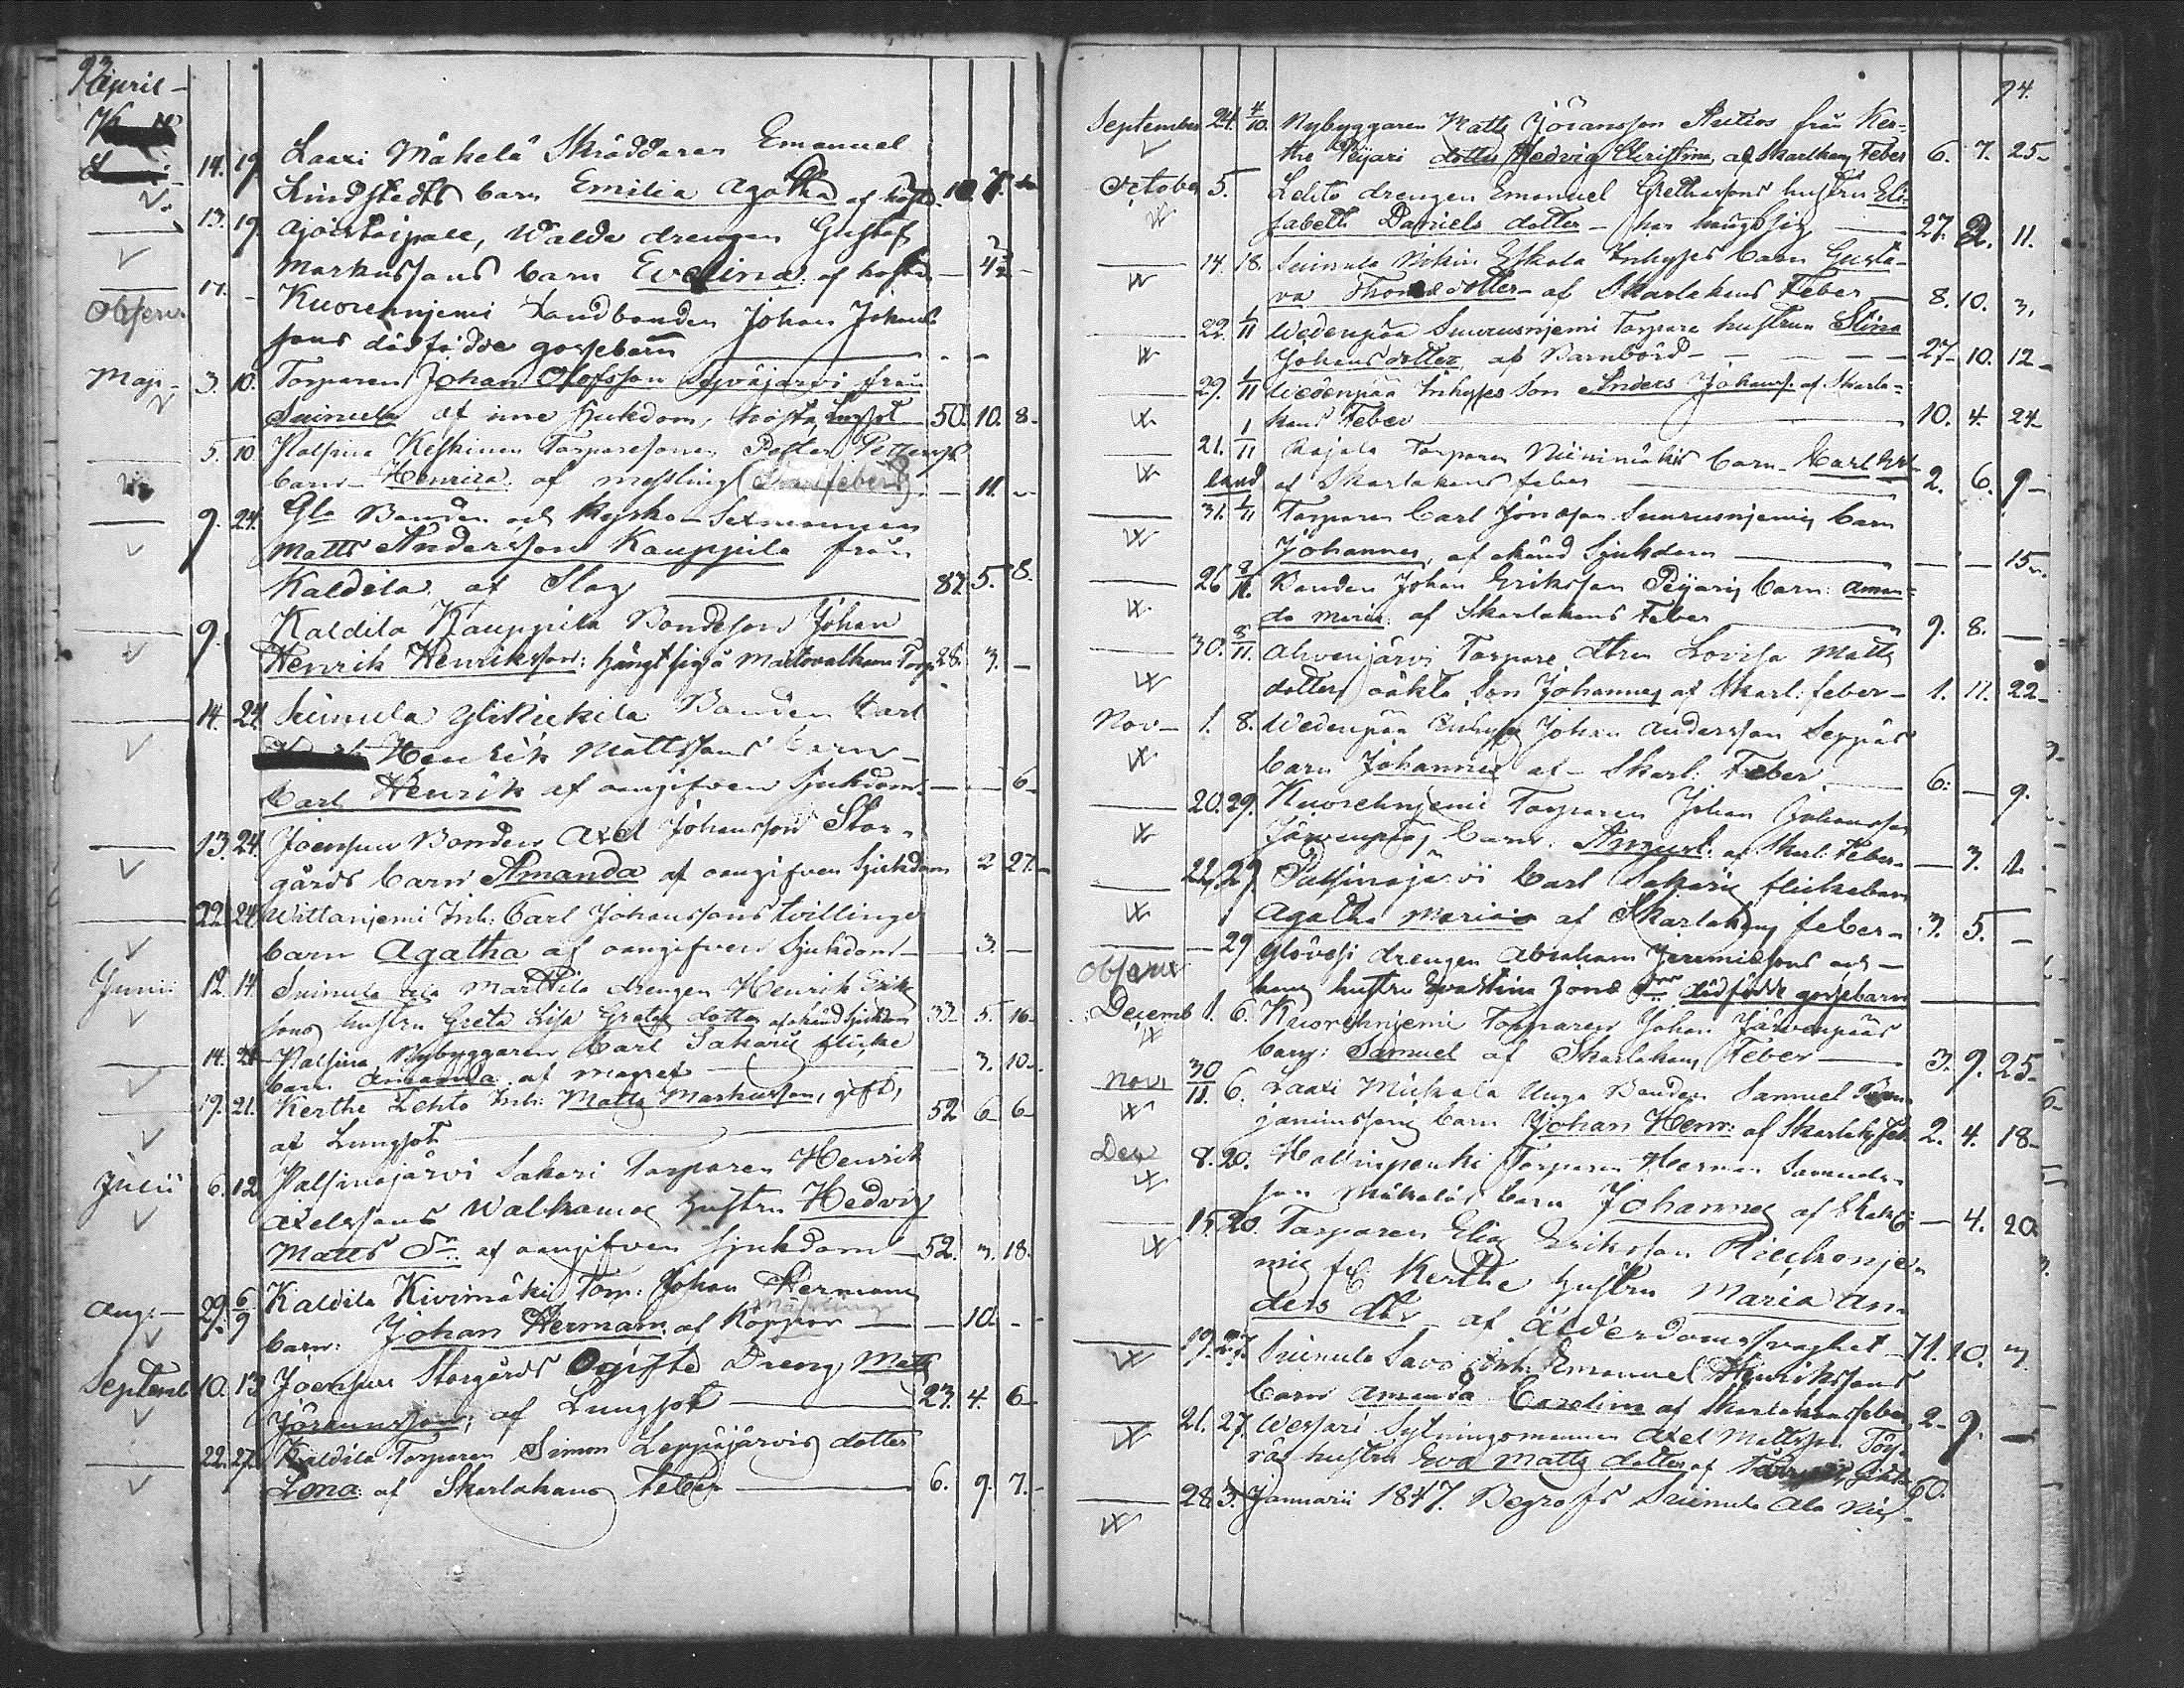 93
April
14. 19. Laaxi Mäkelä Skräddaren Emanuel
Lindstedts barn Emilia Agatha af hosta
13. 19. Walde drengen Gustaf
Markussons barn Evelina af hosta
17. Kuorehnjemi Landbonden Johan Johans
sons dödfödde gossebarn
Observ
Maji 3. 10. Torparen Johan Olofsson från
Suinula af inre sjukdom, hosta, lungsot 50. 10. 8.
5. 10. Palsina Keskinen Torparesonen Petter Petterss.
barn Henrica af messling 11.
9. 24. Gla Bonden och Kyrko-Sexmannen
Matts Andersson Kauppila från
Kaldila af Slag 82. 5. 8.
9. Kaldila Kauppila Bondeson Johan
Henrik Henriksson: hängt sig å Torp 28. 3.
14. 24. Suinula Ylikukila Bonden Carl
Henrik Mattssons barn
Carl Henrik af oangifven sjukdom 6
13. 24. Joensuu Bonden Axel Johansson Stor-
gårds barn Amanda af oangifven sjukdom 2 27.
22. 24. Wittanjemi Inh: Carl Johanssons tvillinge
barn Agatha af oangifven sjukdom 3.
Junii 12. 14. Suinula ala Marttila drengen Henrik Erik
sons hustru Greta Lisa dotter af okänd sjukdom 33. 5. 16.
14. 21. Palsina Nybyggaren Carl Sakaris flicke
barn Amanda af magref 3. 10.
19. 21. Kerthe Lehto Inh: Matts Markusson, gift,
af Lungsot 52 6 6
Julii 6. 12. Palsinajärvi Sakari Torparen Henrik
Axelssons Walkamas hustru Hedvig
Matts Dr. af oangifven sjukdom 52. 3. 18.
Aug: 29. 6/9 Kaldila Kivimäki Torp: Johan Hermans
barn: Johan Herman af Koppor Mässling 10.
Septemb 10. 13. Joensuu Storgårds Ogifte Dreng Matts
Göransson, af Lungsot 23. 4. 6
22. 27. Kaldila Torparen Simon Leppäjärvis dotter
Lena: af Skarlakans feber 6. 9. 7.
94.
September 24. 4/10. Nybyggaren Matts Göransson Autios från Ker-
the Peijari dotter Hedvig Christina, af Skarlakans Feber 6. 7. 25
October 5. Lehto drengen Emanuel Grethassons hustru Eli-
sabeth Daniels dotter - har hängt sig 27. 2. 11.
14. 18. Suinula Nikin Eskola Inhyses barn Gusta-
va Thomas dotter af Skarlakans Feber 8. 10. 3.
22. 1/11 Wedenpää Suurusnjemi Torpare hustrun Stina
Johans dotter af Barnbörd 27. 10. 12
29. 1/11 Wedenpää Inhyses Son Anders Johanss. af Skarla-
kans Feber 10. 4. 24
21. 1/11 Rajala Torparen Nieminäkis barn Carl Er-
land af Skarlakans feber 2. 6. 9
31. 1/11 Torparen Carl Jonasson Suurusnjemis barn
Johannes, af okänd sjukdom 15.
26 8/11. Bonden Johan Eriksson Peijaris barn: Aman-
da Maria: af Skarlakans Feber 9. 8.
30. 8/11. Ahvenjärvi Torpare dtren Lovisa Matts
dotters oäkta Son Johannes af Skarl: feber 1. 11. 22
Nov 1. 8. Wedenpää Inhyses Johan Andersson Seppäs
barn Johannes af Skarl: Feber 6. 9.
20. 29. Kuorehnjemi Torparen Johan Johansson
Järvenpääs barn: August: af Skarl: Feber 3. 1.
22. 29. Palsinajärvi Carl Sakaris flickebarn
Agatha Maria af Skarlakans feber 3. 5.
29 Ylövesi drengen Abraham Jeremiassons och
hans hustru dödfödde gossebarn
Observ
Decemb 1. 6. Kuorehnjemi Torparen Johan Järvenpääs
barn: Samuel af Skarlakans Feber 3. 9. 25
Nov 30/11. 6. Laaxi Mickala Unga Bonden Samuel Ben-
jaminssons barn Johan Henr: af Skarlak: Feb 2. 4. 18
Dec 8. 20. Torparen Herman Samuels-
son Mäkeläs barn Johannes af 4. 20.
15. 20. Torparen Elias Eriksson
mis fr Kerthe hustru Maria An-
ders dtr af ålderdomssvaghet 71. 10. 3.
19. 27. Suinula Savo Inh: Emanuel Henrikssons
barn Amanda Carolina af Skarlakansfeber 2 9.
21. 27. Wessari Sytningsmannen Axel Mattss. Töy-
räs hustru Eva Matts dotter af 60.
28. 3. Januarii 1847. Begrofs Suinula Ala